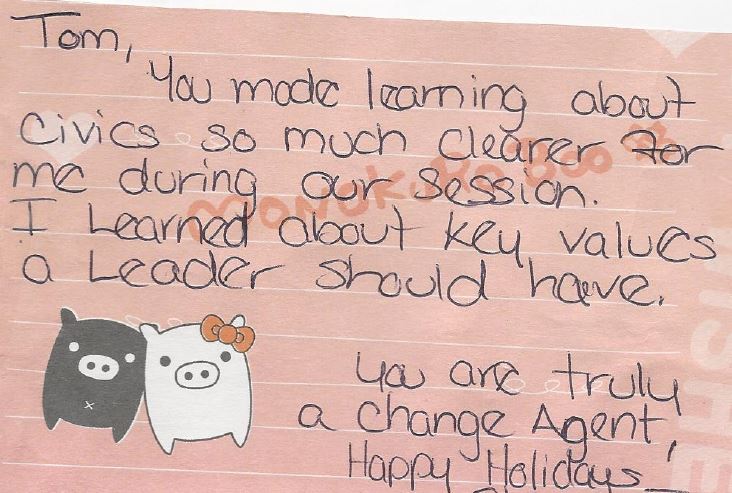 Tom,
You made learning about
Civics so much clearer for
me during our session.
I Learned about key values
a Leader should have.
you are truly
a change Agent,
Happy Holidays